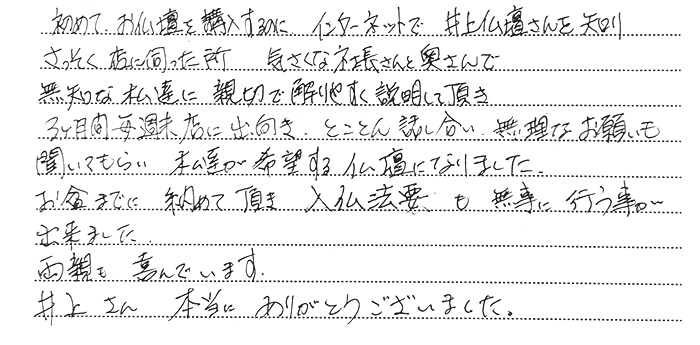 初めて、お仏壇を購入するのに インターネットで 井上仏壇さんを知り
さっそく 店に伺った所 気さくな社長さんと奥さんで
無知な私達に 親切で解りやすく説明して頂き
3ヶ月間毎週末店に出向き、とことん話し合い、無理なお願いも
聞いてもらい 私達が希望する仏壇になりました。
お盆までに 納めて頂き 入仏法要も 無事に行う事が
出来ました。
両親も 喜んでいます。
井上さん 本当に ありがとうございました。